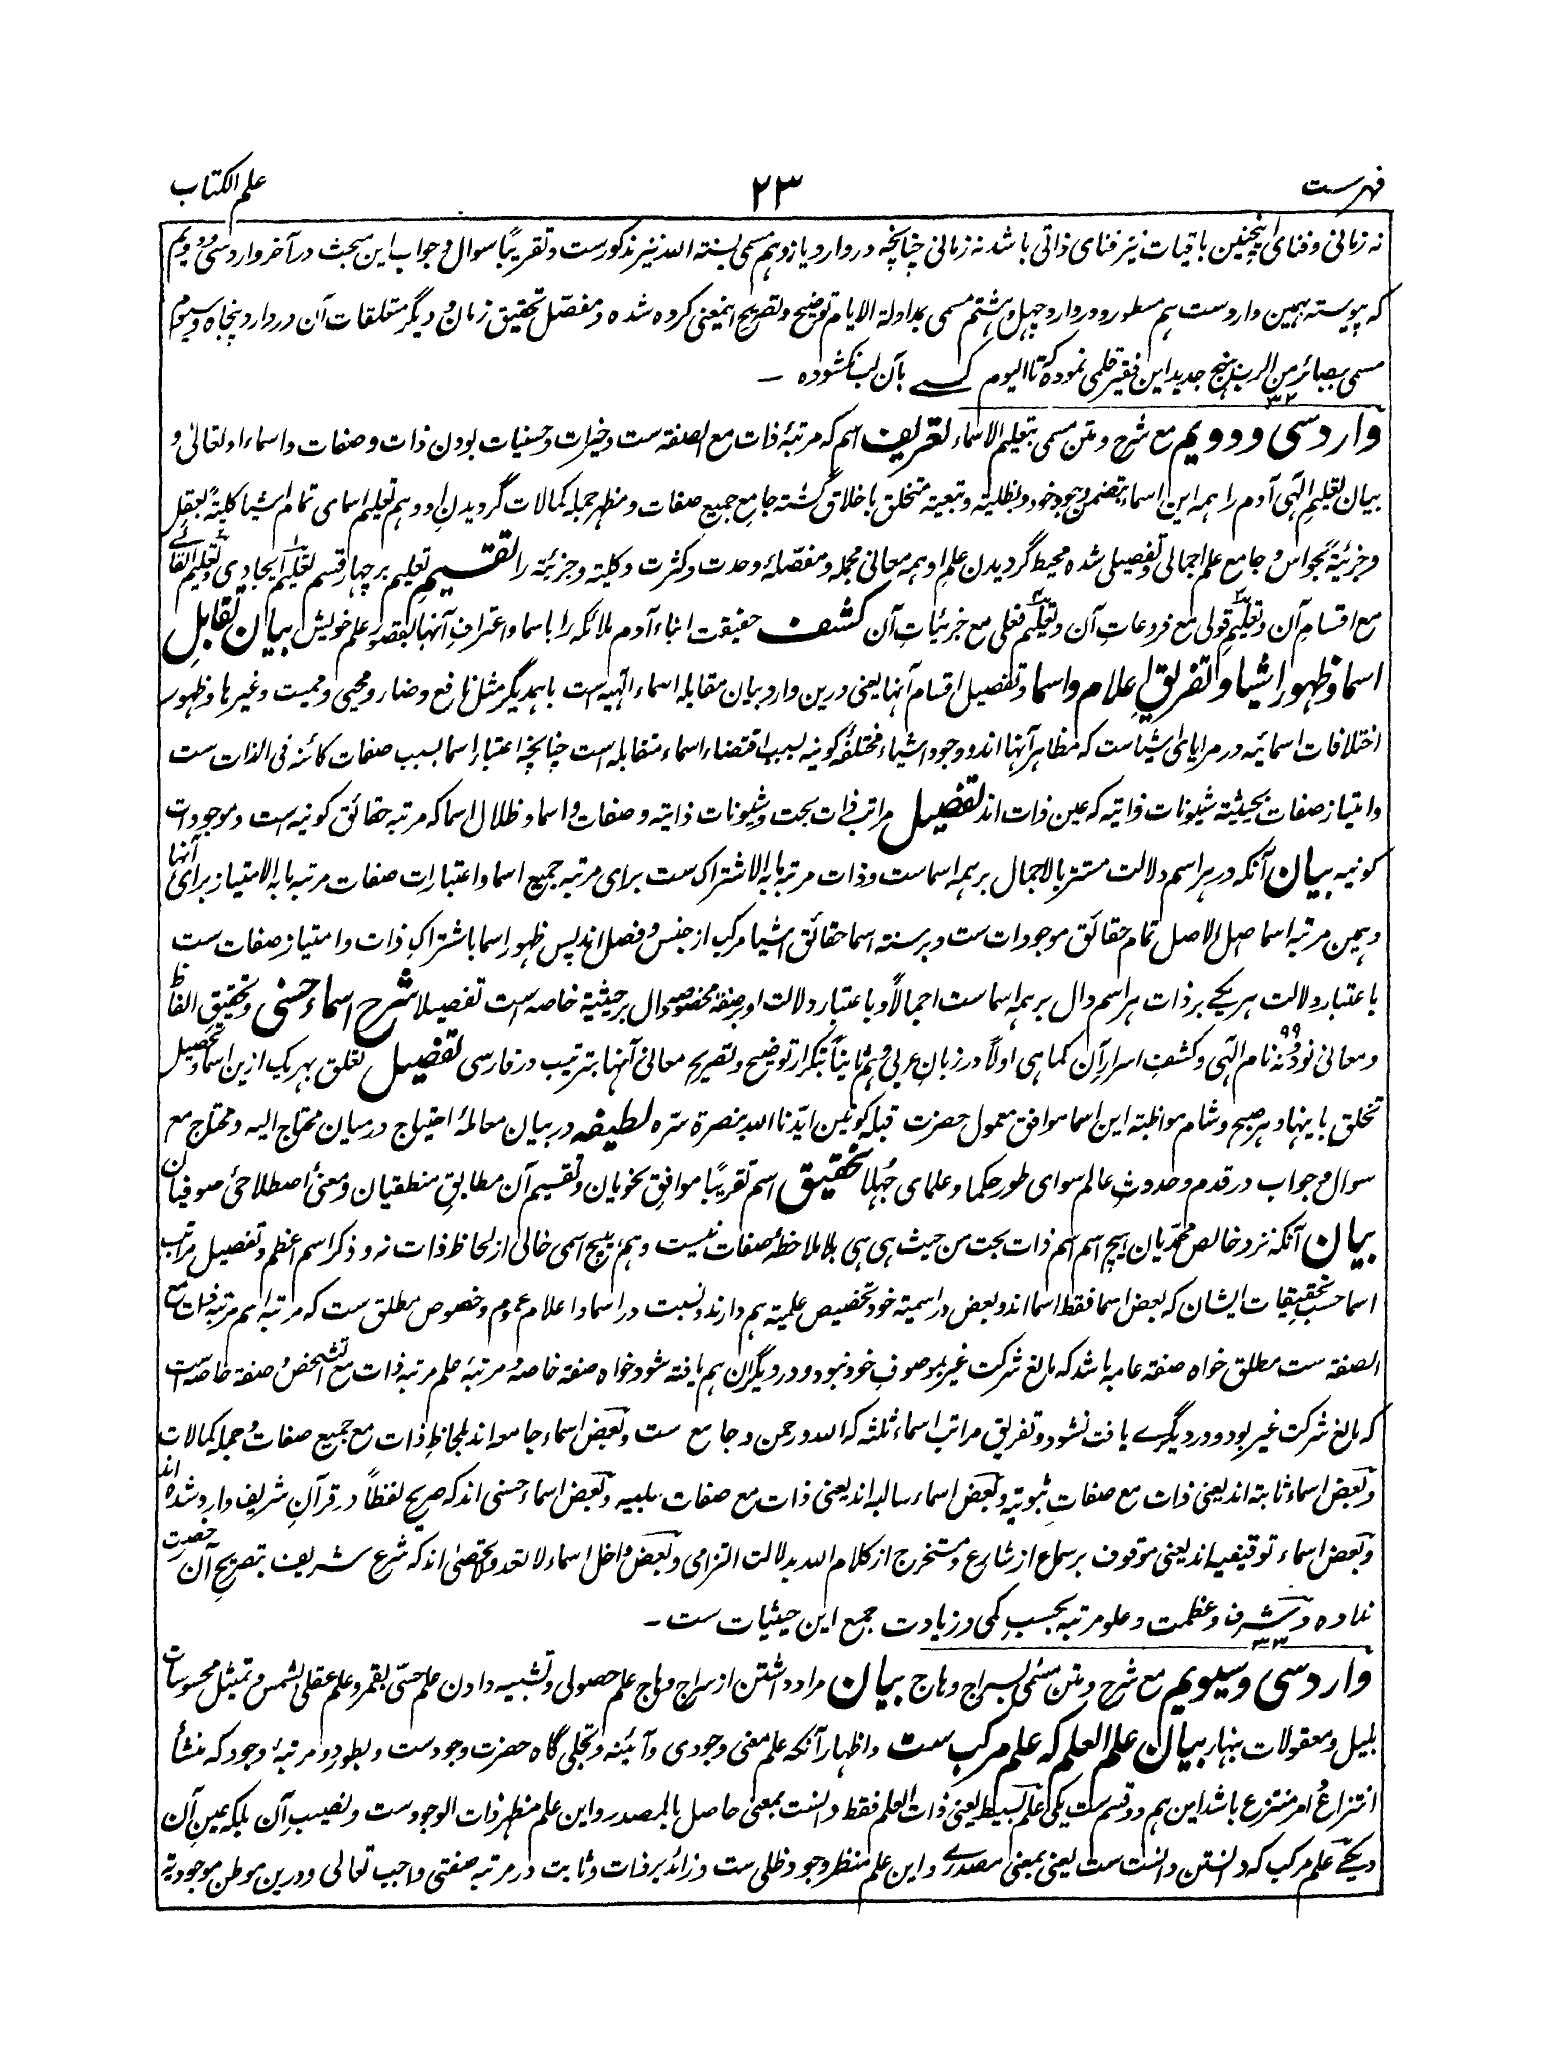 فهرست ۲۳ علم الکتاب
نه زمانی و فنای اینچنین باقیات نیز فنای ذاتی باشد نه زمانی چنانچه در وارد یازدهم مسمی بسنته الله نیز مذکورست و تقریبًا سوال و جواب این مبحث در آخر وارد سی و دویم
که پیوسته بهمین واردست هم مسطور و در وارد چهل و هشتم مسمی بمداولة الایام توضیح و تصریح اینمعنی کرده شده و مفصّل تحقیق زمان و دیگر متعلقات آن در وارد پنجاه و سیوم
مسمی ببصائر من الرب بنهج جدید این فقیر قلمی نموده که تا الیوم کسے بآن لب نکشوده ـ
۳۲
وارد سی و دویم مع شرح و متن مسمی بتعلیم الاسماء تعریف اسم که مرتبۂ ذات مع الصفته ست و خیرات و حسنیات بودن ذات و صفات و اسماء او تعالیٰ و
بیان تعلیم الٓهی آدم را همه این اسماء بتضمن وجود خود و بظلیته و تبعیته متخلق باخلاق گشته جامع جمیع صفات و مظهر جمله کمالات گردیدنِ او و هم تعلیم اسمای تمام اشیا کلیتهً بعقل
و جزئیّةً بحواس و جامع علم اجمالی و تفصیلی شده محیط گردیدن علم او همه معانی مجمله و مفصّلۂ وحدت و کثرت و کلیته و جزئیته را تقسیم تعلیم بر چهار قسم تعلیم ایجادی و تعلیم القائے
مع اقسام آن و تعلیم قولی مع فروعاتِ آن و تعلیم فعلی مع جزئیاتِ آن کشف حقیقت انباء آدم ملائکه را باسما و اعترافِ آنها بقصور علم خویش بیان تقابلِ
اسما و ظهور اشیا و تفریقِ اعلام و اسما و تفصیل اقسام آنها یعنی درین وارد بیان مقابله اسماء الٓهیه ست باهمدیگر مثل نافع و ضار و محیی و ممیت و غیرها و ظهور
اختلافات اسمائیه در مرایای اشیاست که مظاهر آنها اند و وجود اشیاء مختلفۂ کونیه بسبب اقتضاء اسماء متقابله است چنانچه اعتبار اسما بسبب صفات کائنه فی الذات ست
و امتیاز صفات بحیثیته شیونات ذاتیه که عین ذات اند تفصیل مراتب ذات بحت و شیونات ذاتیه و صفات و اسما و ظلال اسما که مرتبه حقائق کونیه است و موجودات
کونیه بیان آنکه در هر اسم دلالت مستتر بالاجمال بر همه اسماست و ذات مرتبه ما به الاشتراک ست برای مرتبه جمیع اسما و اعتبارات صفات مرتبه ما به الامتیاز برای آنها
و همین مرتبه اسما اصل الاصل تمام حقائق موجودات ست و برسنته اسما حقائق اشیا مرکب از جنس و فصل اند پس ظهور اسما باشتراک ذات و امتیاز صفات ست
باعتبار دلالت هر یکے بر ذات هر اسم دال بر همه اسماست اجمالًا و باعتبار دلالت او بر صفۂ مخصوصه دال بر حیثیة خاصه است تفصیلا شرح اسماء حسنی و تحقیق الفاظ
و معانی نود و نه ۹۹ نام الٓهی و کشف اسرار آن کماهی اولًا در زبان عربی و هم ثانیاً بتکرار توضیح و تصریح معانی آنها بترتیب در فارسی تفصیل تعلق بهر یک ازین اسما و تحصیل
تخلق باینها و هر صبح و شام مواظبته این اسما موافق معمول حضرت قبله کونین ایّدنا الله بنصرة سرّه لطیفه در بیان معاملۂ احتیاج درمیان محتاج الیه و محتاج مع
سوال و جواب در قدم و حدوثِ عالم سوای طور حکما و علمای جُهلا تحقیق اسم تقریبًا موافق نحویان و تقسیم آن مطابقِ منطقیان و معنی اصطلاحیٔ صوفیان
بیان آنکه نزد خالص محمدیان هیچ اسم اسم ذات بحت من حیث هی هی بلا ملاحظۂ صفات نیست و هم هیچ اسمی خالی از لحاظ ذات نه و ذکر اسم اعظم و تفصیل مراتب
اسما حسب تحقیقات ایشان که بعض اسما فقط اسما اند و بعض در اسمیته خود تخصیص علمیته هم دارند و نسبت در اسما و اعلام عموم و خصوص مطلق ست که مرتبه اسم مرتبه ذات مع
الصفته ست مطلق خواه صفته عامه باشد که مانع شرکت غیر بموصوف خود نبود و در دیگران هم یافته شود خواه صفته خاصه و مرتبۂ علم مرتبه ذات مع التشخص و صفته خاصه است
که مانع شرکت غیر بود و در دیگرے یافت نشود و تفریق مراتب اسماء ثلثه که الله و رحمن و جامع ست و بعض اسماء جامعه اند بلحاظ ذات مع جمیع صفات و جمله کمالات
و بعض اسماء ثابته اند یعنی ذات مع صفاتِ ثبوتیه و بعض اسماء سالبه اند یعنی ذات مع صفات سلبیه و بعض اسماء حسنی اند که صریح لفظاً در قرآنِ شریف وارد شده اند
و بعض اسماء توقیفیه اند یعنی موقوف بر سماع از شارع و مستخرج از کلام الله بدلالت التزامی و بعض داخل اسماء لا تعد و لا تحصیٰ اند که شرع شریف بتصریحِ آن رخصت
نداده و شرف و عظمت و علو مرتبه بحسبِ کمی و زیادت جمع این حیثیات ست ـ
۳۳
وارد سی و سیویم مع شرح و متن مسمّی السراج وهاج بیان مراد داشتن از سراج وهاج علم حصولی و تشبیه دادن علم حسّی بقمر و علم عقلی بشمس و تمثیل محسوسات
بلیل و معقولات بنهار بیان علم العلم که علم مرکب ست و اظهار آنکه علم معنی وجودی و آئینه و تجلی گاه حضرت وجودست و بطور دو مرتبۂ وجود که منشأ
انتزاع و امر منتزع باشد این هم دو قسم ست یکی علم بسیط یعنی ذات العلم فقط دانست بمعنی حاصل بالمصدر و این علم مظهر ذات الوجودست و نصیب آن بلکه عین آن
دیگے علم مرکب که دانستن دانست ست یعنی بمعنی مصدرے و این علم منظر وجود ظلی ست و زائد بر ذات و ثابت در مرتبه صفتی واجب تعالی و درین موطن موجودیة